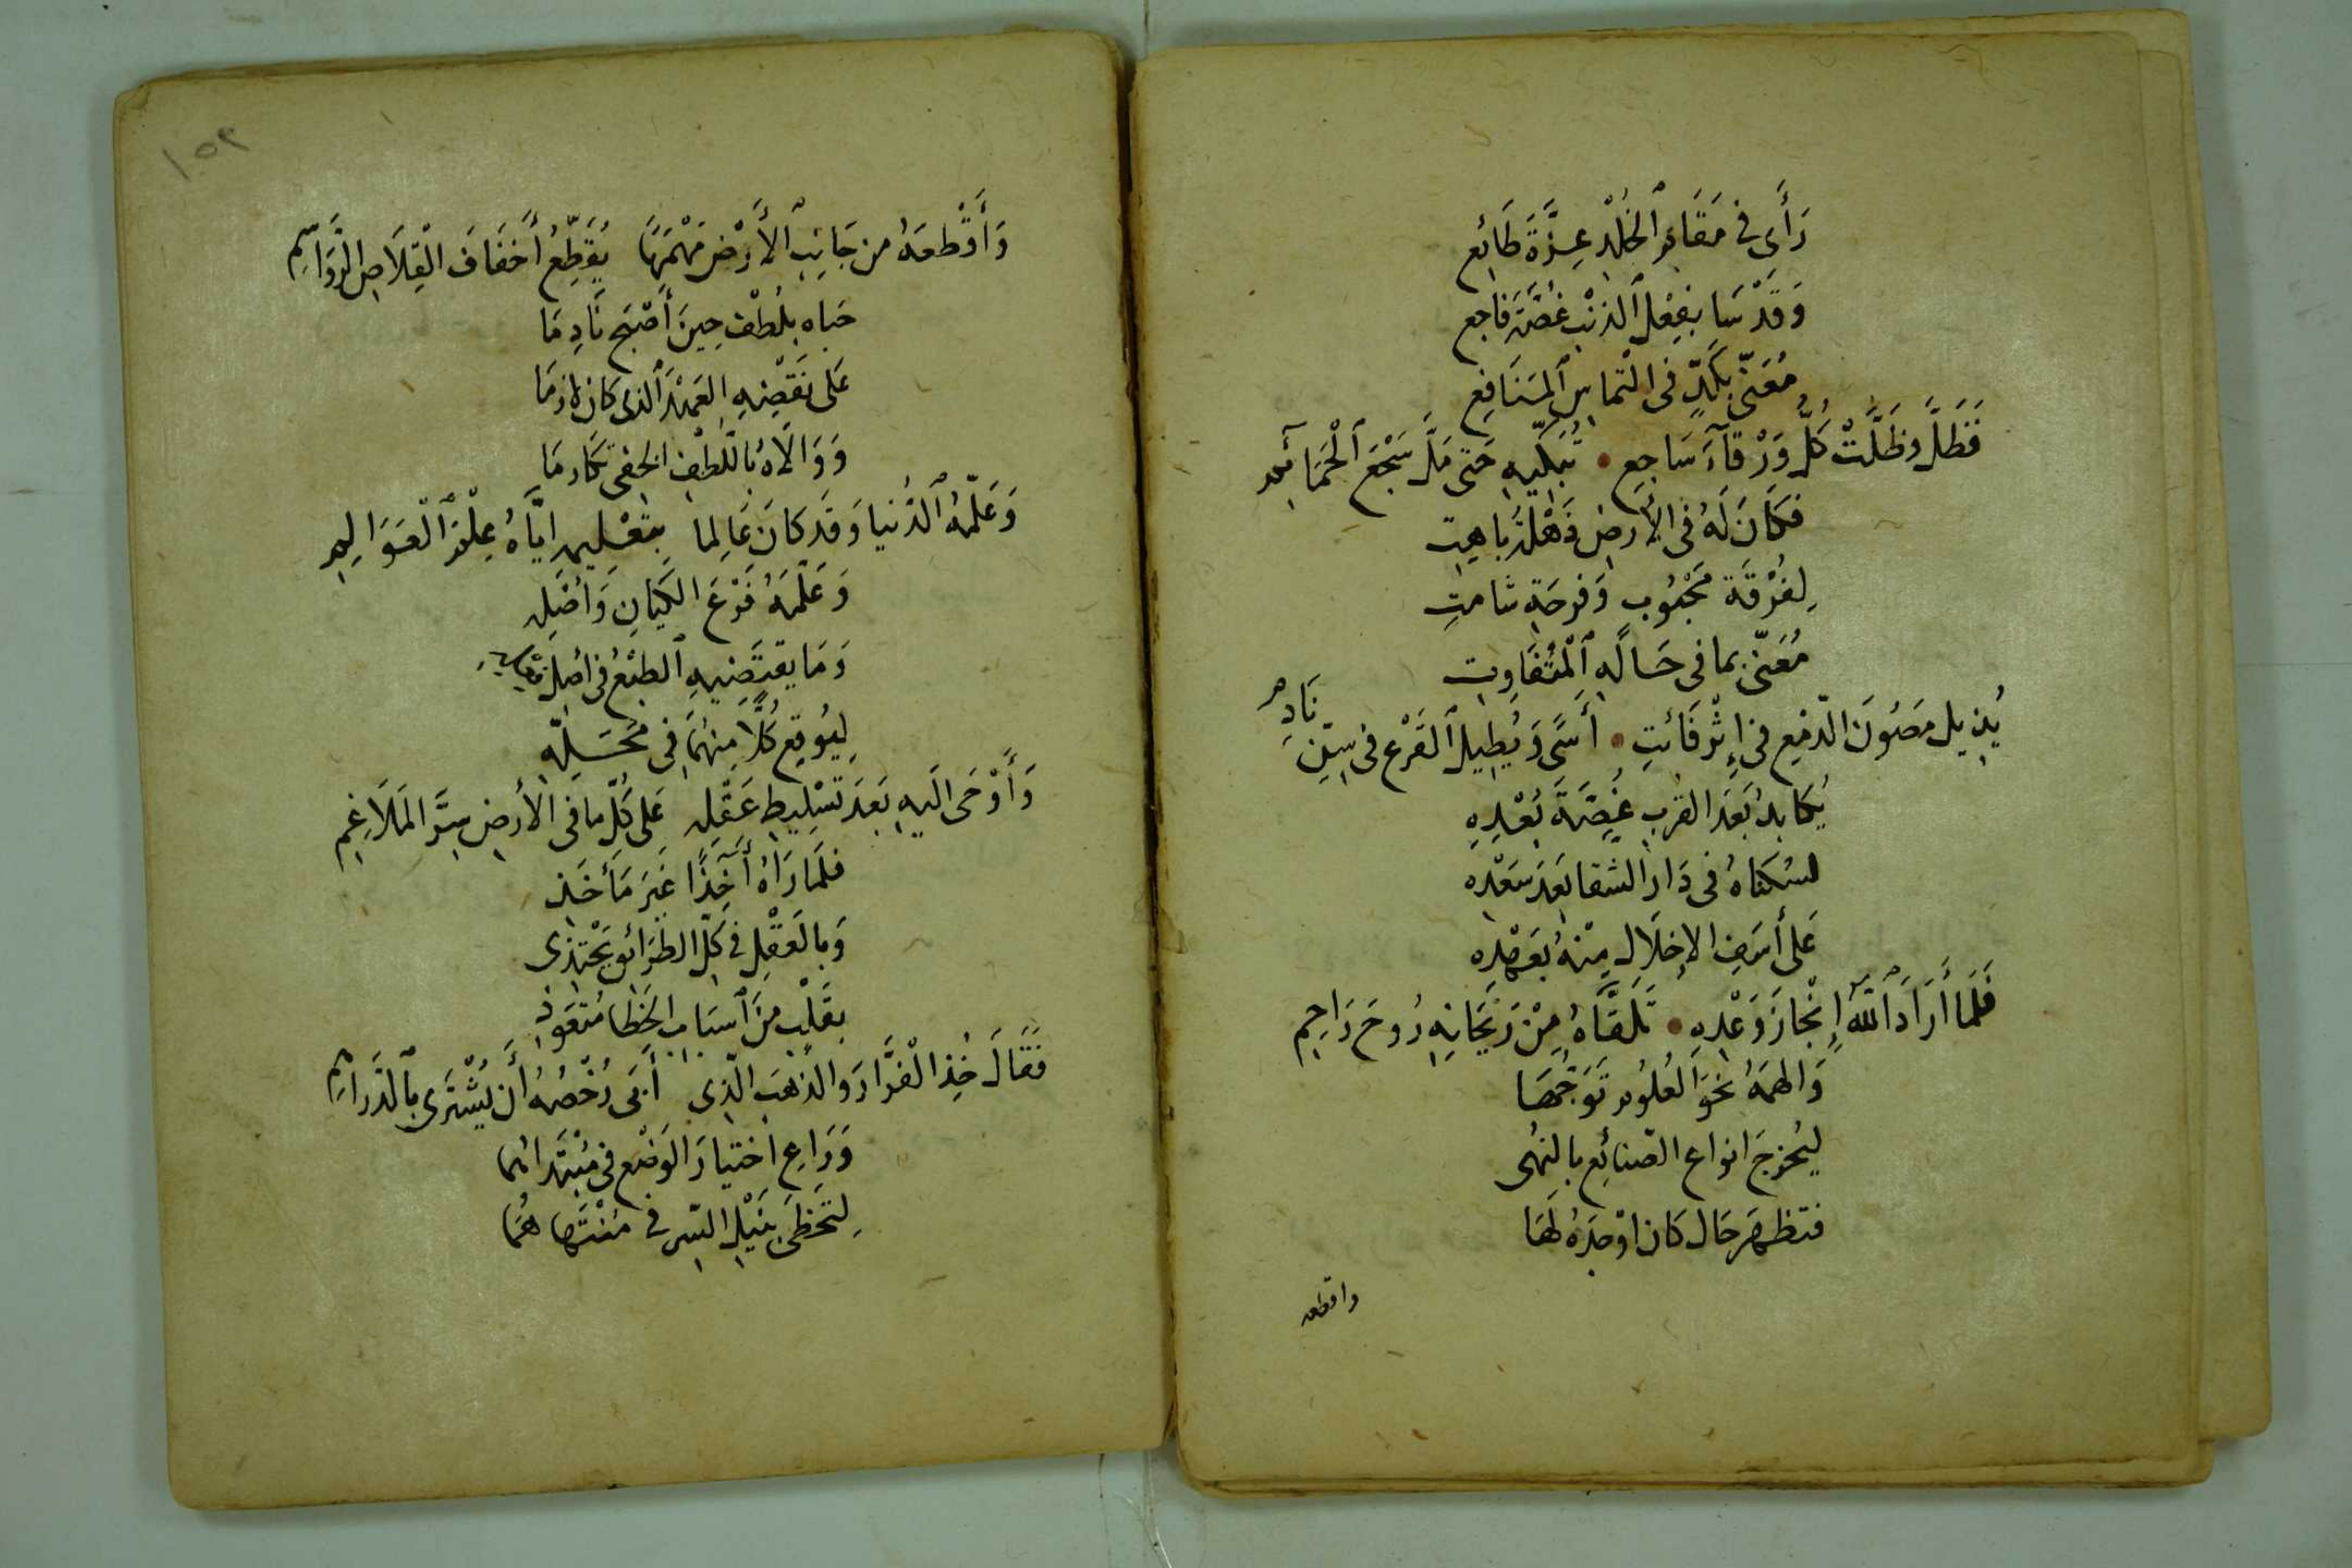 رَأَى فِي مَقَامِ ٱلخُلْدِ عِزَّةَ طَائِعِ
وَقَدْ سَا بِفِعْلِ ٱلذَنْبِ غُصَّةَ فَاجِعِ
مُعَنّى بِكَدٍّ فى التماسِ ٱلمَنَافِعِ
فَظَلَّ وظَلَّتْ كُلُّ وَرْقَآءَ سَاجِعٍ • تُبَكِّيهِ حَتى مَلَّ سَجْعَ ٱلْحَمَائِمِ
فكَانَ لَهُ فى الأَرضِ ذَهْلَةُ بَاهِتِ
لِفُرْقَةِ مَحْبُوبٍ وَفرحَةِ شامتِ
مُعَنّى بما فى حَالَهِ ٱلْمتُفَاوِتِ
يُذِيل مَصُونَ الدّمعِ فى إِثْرِ فَائتِ • أَسًى وَيُطِيلُ ٱلقَرْعَ فى سِنِّ نَادِمِ
يُكابدُ بَعَدَ القربِ غُصَّةَ بُعْدِهِ
لسُكناهُ فى دَارِ الشقا بَعدَ سَعْدِه
عَلى أسَفِ الإِخلَالِ مِنْهُ بِعَهْدِه
فَلمَا أَرَادَ ٱللَّهُ إِنْجَازَ وَعْدِهِ • تَلَقَّاهُ مِنْ رَيْحَانِهِ رُوحَ رَاحِمِ
وَالهمَهُ نحَوَ العُلُومِ تَوَجُّهَا
ليُخرِجَ انواعَ الصّنائِعِ بالنهُى
فتظهرَ حَال كَانَ اوْجَدَهُ لَهَا
واقطعه
١٥٢
وَأَقْطعَهُ من جَانِبِ ٱلأَرْضِ مَهْمَهًا يُقَطِّعُ أَخفَافَ القِلَاصِ الرَّوَاسِمِ
حَباه بِلُطْفٍ حِينَ أَصْبَح نَادِمَا
عَلى نَقْضِهِ العَهْدَ ٱلذى كَانَ لازمَا
وَوَالَاهُ بِاللُّطْفِ الخفى مكَارمَا
وَعَلّمهُ ٱلدُنيا وَقَد كانَ عَالِما بِتَعْلِيمِ ايَّاهُ عِلْمَ ٱلْعَوَالِمِ
وَعَلّمَهُ فَرْعَ الكِيَانِ وَاصْلِه
وَمَا يقتَضِيهِ ٱلطبْعُ فى اصْلِ
لِيُوقِعَ كُلًّا مِنهُمَا فى مَحَلّهِ
وَأَوْحَى الَيهِ بَعَدَ تَسْلِيطِ عَقْلِهِ عَلى كُلّ ما فى الأَرضِ سِرَّ المَلَاغِمِ
فلَمَا رَآهُ آخِذًا غَيرَ مَأْخَذ
وَبِالعَقْلِ فى كِلّ الطَرَائقِ يَحْتذى
بقَلْبٍ مِنَ ٱسبَابِ الخَطا مُتَعَوِذ
فَقَالَ خُذِ الْفَرَّارَ وَالذهَبَ الّذِى أَبَى رُخْصُهُ أَن يُشْتَرَى بِٱلدَراهِمِ
وَرَاعِ اختيارَ الوَضْعِ فى مُبْتَدَائهمَا
لِتَحْظَى بِنَيْلِ السّرِ فى مُنْتَهاهُمَا